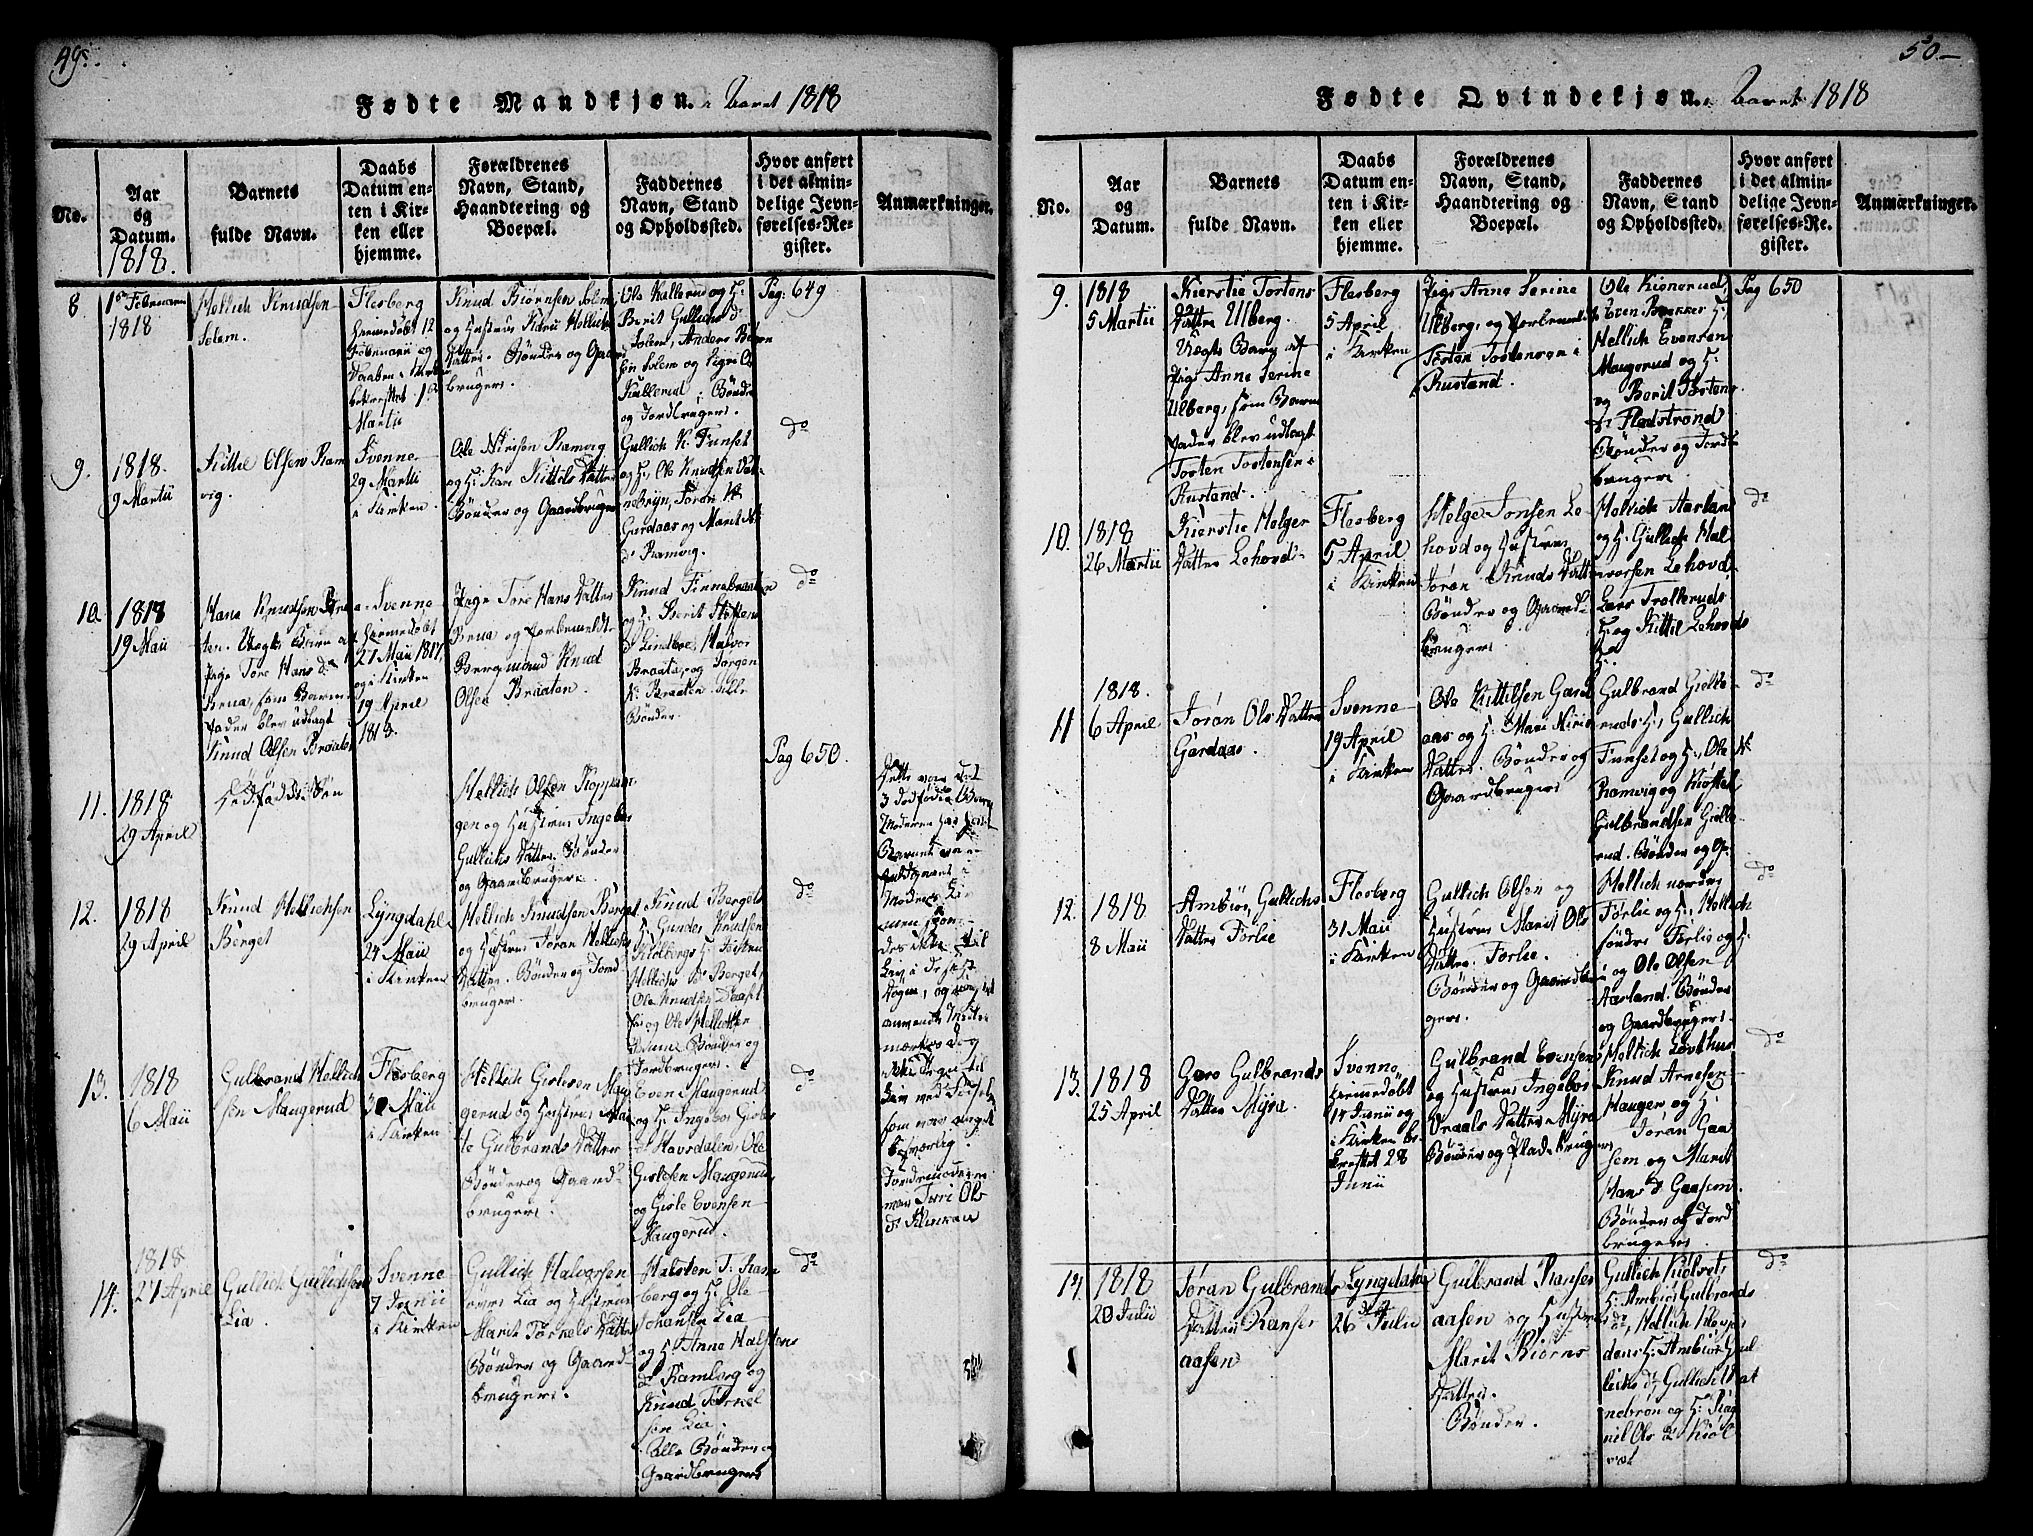 49.
Fødte Mandkjøn. i Aaret 1818
No.
Aar
og
Datum.
Barnets
fulde Navn.
Daabs
Datum en-
ten i Kir-
ken eller
hjemme.
Forældrenes
Navn, Stand,
Haandtering og
Boepæl.
Faddernes
Navn, Stand
og Opholdssted.
Hvor anført
i det almin-
delige Jevn-
førelses-Re-
gister.
Anmærkninger.
1818.
8
1ste Februarii
1818
Hellich Knudsen
Solem.
Flesberg
hiemedøbt 12
Februarii og
Daaben i Kirken
bekræftet 1ste
Martii
Knud Biørnsen Solem
og Hustrue Kari Hellichs
Datter. Bønder og Gaard
brugere.
Ole Kallerud og H:
Berit Gullichs D:
Solem, Anders Biørn
sen Solem og Sigri Ols
Kallerud. Bønder
og Jordbrugere.
Pag: 649
9.
1818.
9 Martii
Kittil Olsen Ram
vig.
Svenne
29 Martii
i Kirken.
Ole Nirisen Ramvig
og H: Kari Kittils Datter
Bønder og Gaardbrugere
Gullich K. Funset
og H:, Ole Knudsen Vat-
nebryn, Joran K:
Gardaas og Marit N:
D: Ramvig.
do
10
1818
19 Maii
Hans Knudsen Bre
ten. Uægte Barn af
Pige Tore Hans D:
Brena, som Barne
fader blev udlagt
Knud Olsen Braaten
Svenne
hiemedøbt
27 Maii 1817,
og i Kirken
19 April
1818.
Pige Tore Hans Datter
Brena og forbemeldte
Bergmand Knud
Olsen Braaten.
Knud Finnebraaten
og H: Berit Steffens
D: Lindboe, Halvor
Braata, og Jørgen
K: Braaten. Alle
Bønder.
do
11.
1818
29 April
Dødfødt Søn
Hellich Olsen Koppan-
gen og Hustrue Ingebor
Gullichs Datter. Bønder
og Gaardbrugere.
Pag 650.
Dette var det
3 dødfødte Barn
Moderen har havt
Barnet var
fuldkomment i
Moders Liv
men kom-
des ikke til
Liv i de sidste
Døgn, og

12.
1818
29 April
Knud Hellichsen
Berget
Lyngdahl
24 Maii
i Kirken
Hellich Knudsen Berget
og Hustrue Joran Hellichs
Datter. Bønder og Jord
brugere.
Knud Berget
H: Gunder Knudsen
Kolbergs H:
Hellichs D: Berget,
Ole Knudsen Daaset
og Ole Hellichsen
Bønder og
Jordbrugere.
do
anvendte
mærkes dog
ikke Tegn til
Liv ved Fødselen
som var meget
besværlig.
Jordemoderen
var Turi Ols
D:
13.
1818
6 Maii
Gulbrand Hellich
sen Haugerud
Flesberg
31 Maii
i Kirken
Hellich Gislesen Hau
gerud og Hustrue
Gulbrands Datter
Bønder og Gaard
brugere.
Even Haugerud
og H: Ingebor Gisles
D: Havrdalen, Ole
Gislesen Haugerud,
og Gisle Evensen
Haugerud.
do
14.
1818
27 April
Gullich Gullichsen
Lia.
Svenne
7 Junii
i Kirken
Gullich Halvorsen
Lia og Hustrue
Marit Torkels Datter
Bønder og Gaard
brugere.
Halsten T: Ram
berg og H: Ole
Johansen Lia
og H: Anne Halstens
D: Ramberg og
Knud Torkel
sen Lia.
Alle Bønder og
Gaardbrugere
do
50.
Fødte Qvindekjøn. i Aaret 1818
No.
Aar
og
Datum.
Barnets
fulde Navn.
Daabs
Datum en-
ten i Kir-
ken eller
hjemme.
Forældrenes
Navn, Stand,
Haandtering og
Boepæl.
Faddernes
Navn, Stand
og Opholdssted.
Hvor anført
i det almin-
delige Jevn-
førelses-Re-
gister.
Anmærkninger.
9.
1818
5 Martii
Kierstie Tostens
Datter Ulberg.
Uægte Barn af
Pige Anne Serine
Ulberg, som Barne
fader blev udlagt
Tosten Tostensen
Rustand.
Flesberg
5 April
i Kirken
Pige Anne Serine
Ulberg, og forbemeldte
Tosten Tostensen
Rustand.
Ole Kiønerud,
Even Bekker H:
Hellich Evensen
Haugerud og H:
og Berit Tostens
D: Fladstrand
Bønder og Jord
brugere
Pag 650
10.
1818
26 Martii
Kierstie Helges
Datter Lehovd
Flesberg
5 April
i Kirken
Helge Jonsen Le
hovd og Hustrue
Joran Knuds Datter
Bønder og Gaard-
brugere
Hellich Aarland
og H: Gullich Hal
vorsen Lehovd,
Lars Trollerud
H: og Kittil Lehovds
H:
do
11
1818.
6 April
Joran Ols Datter
Gardaas.
Svenne
19 April
i Kirken
Ole Kittilsen Gard
aas og H: Mari Niris
Datter. Bønder og
Gaardbrugere
Gulbrand Gislle-
rud H:, Gullich
Funset og H:, Ole N:
Ramvig og Kiøstel
Gulbrandsen Gisle
rud. Bønder og G:
do
12.
1818
8 Maii
Ambior Gullichs
Datter Førlie
Flesberg
31 Maii
i Kirken
Gullich Olsen og
Hustrue Marit Ols
Datter Førlie.
Bønder og Gaardbru
gere.
Hellich nordre
Førlie og H:, Hellich
søndre Førlie og H:
og Ole Olsen
Aarland. Bønder
og Gaardbrugere.
do
13.
1818
25 April
Goro Gulbrands
Datter Myra.
Svenne
hiemedøbt
14 Junii og
i Kirken be-
kræftet 28
Junii
Gulbrand Evensen
og Hustrue Ingebor
Vraals Datter Myra
Bønder og Pladsbrugere
Hellich Løvthus
Knud Arnesen
Hauger og H:
Joran Gaa
sem og Marit
Hans D: Gaasem.
Bønder og Jord
brugere
do
14
1818
20 Julii
Joran Gulbrands
Datter Kanser
aasen
Lyngdahl
26 Julii
Gulbrand Kanser
aasen og Hustrue
Marit Biørns
Datter.
Bønder.
Gullich Kiølvet,
H: Ambiør Gulbrands
D:, Hellich
H: Ambiør Gul
lichs D: Gullich Vat
nebrøn og H: Rag
nil Ols D: Kiøl
vet
do